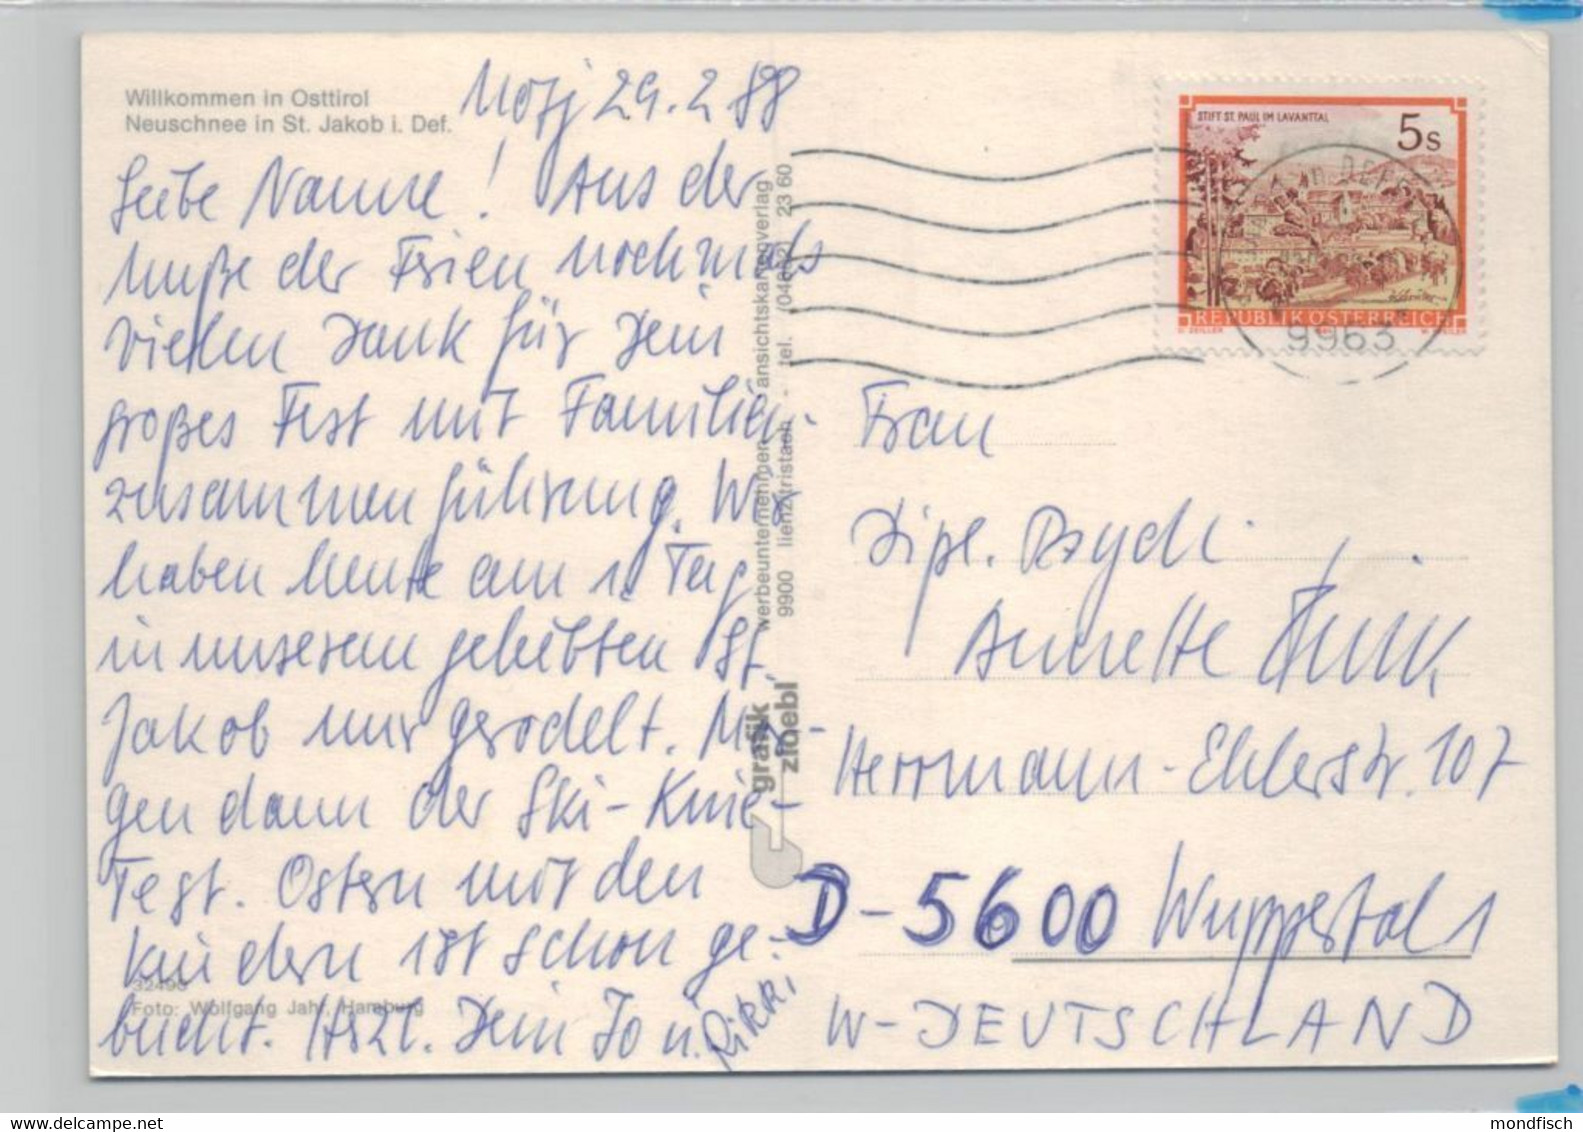 Willkommen in Osttirol
Neuschnee in St. Jakob i. Def.
29.2.88
Liebe Nanne! Aus der
Muße der Ferien nochmals
vielen Dank für Dein
großes Fest mit Familien-
zusammenführung. Wir
haben heute am 1. Tag
in unserem geliebten St.
Jakob nur gerodelt. Mor-
gen dann der Ski-Knie-
Test. Ostern mit den
Kindern ist schon ge-
bucht. Herzl. Dein Jo u. Rikki
32496
Foto: Wolfgang Jahr, Hamburg
werbeunternehmen ansichtskartenverlag
9900 lienz/tristach - tel. (04852) 23 60
grafik
zloebl
STIFT ST. PAUL IM LAVANTTAL
5s
REPUBLIK ÖSTERREICH
9963
Frau
Dipl. Psych.
Annette
Herrmann-Ehlersstr. 107
D-5600 Wuppertal 1
W-DEUTSCHLAND
mondfisch